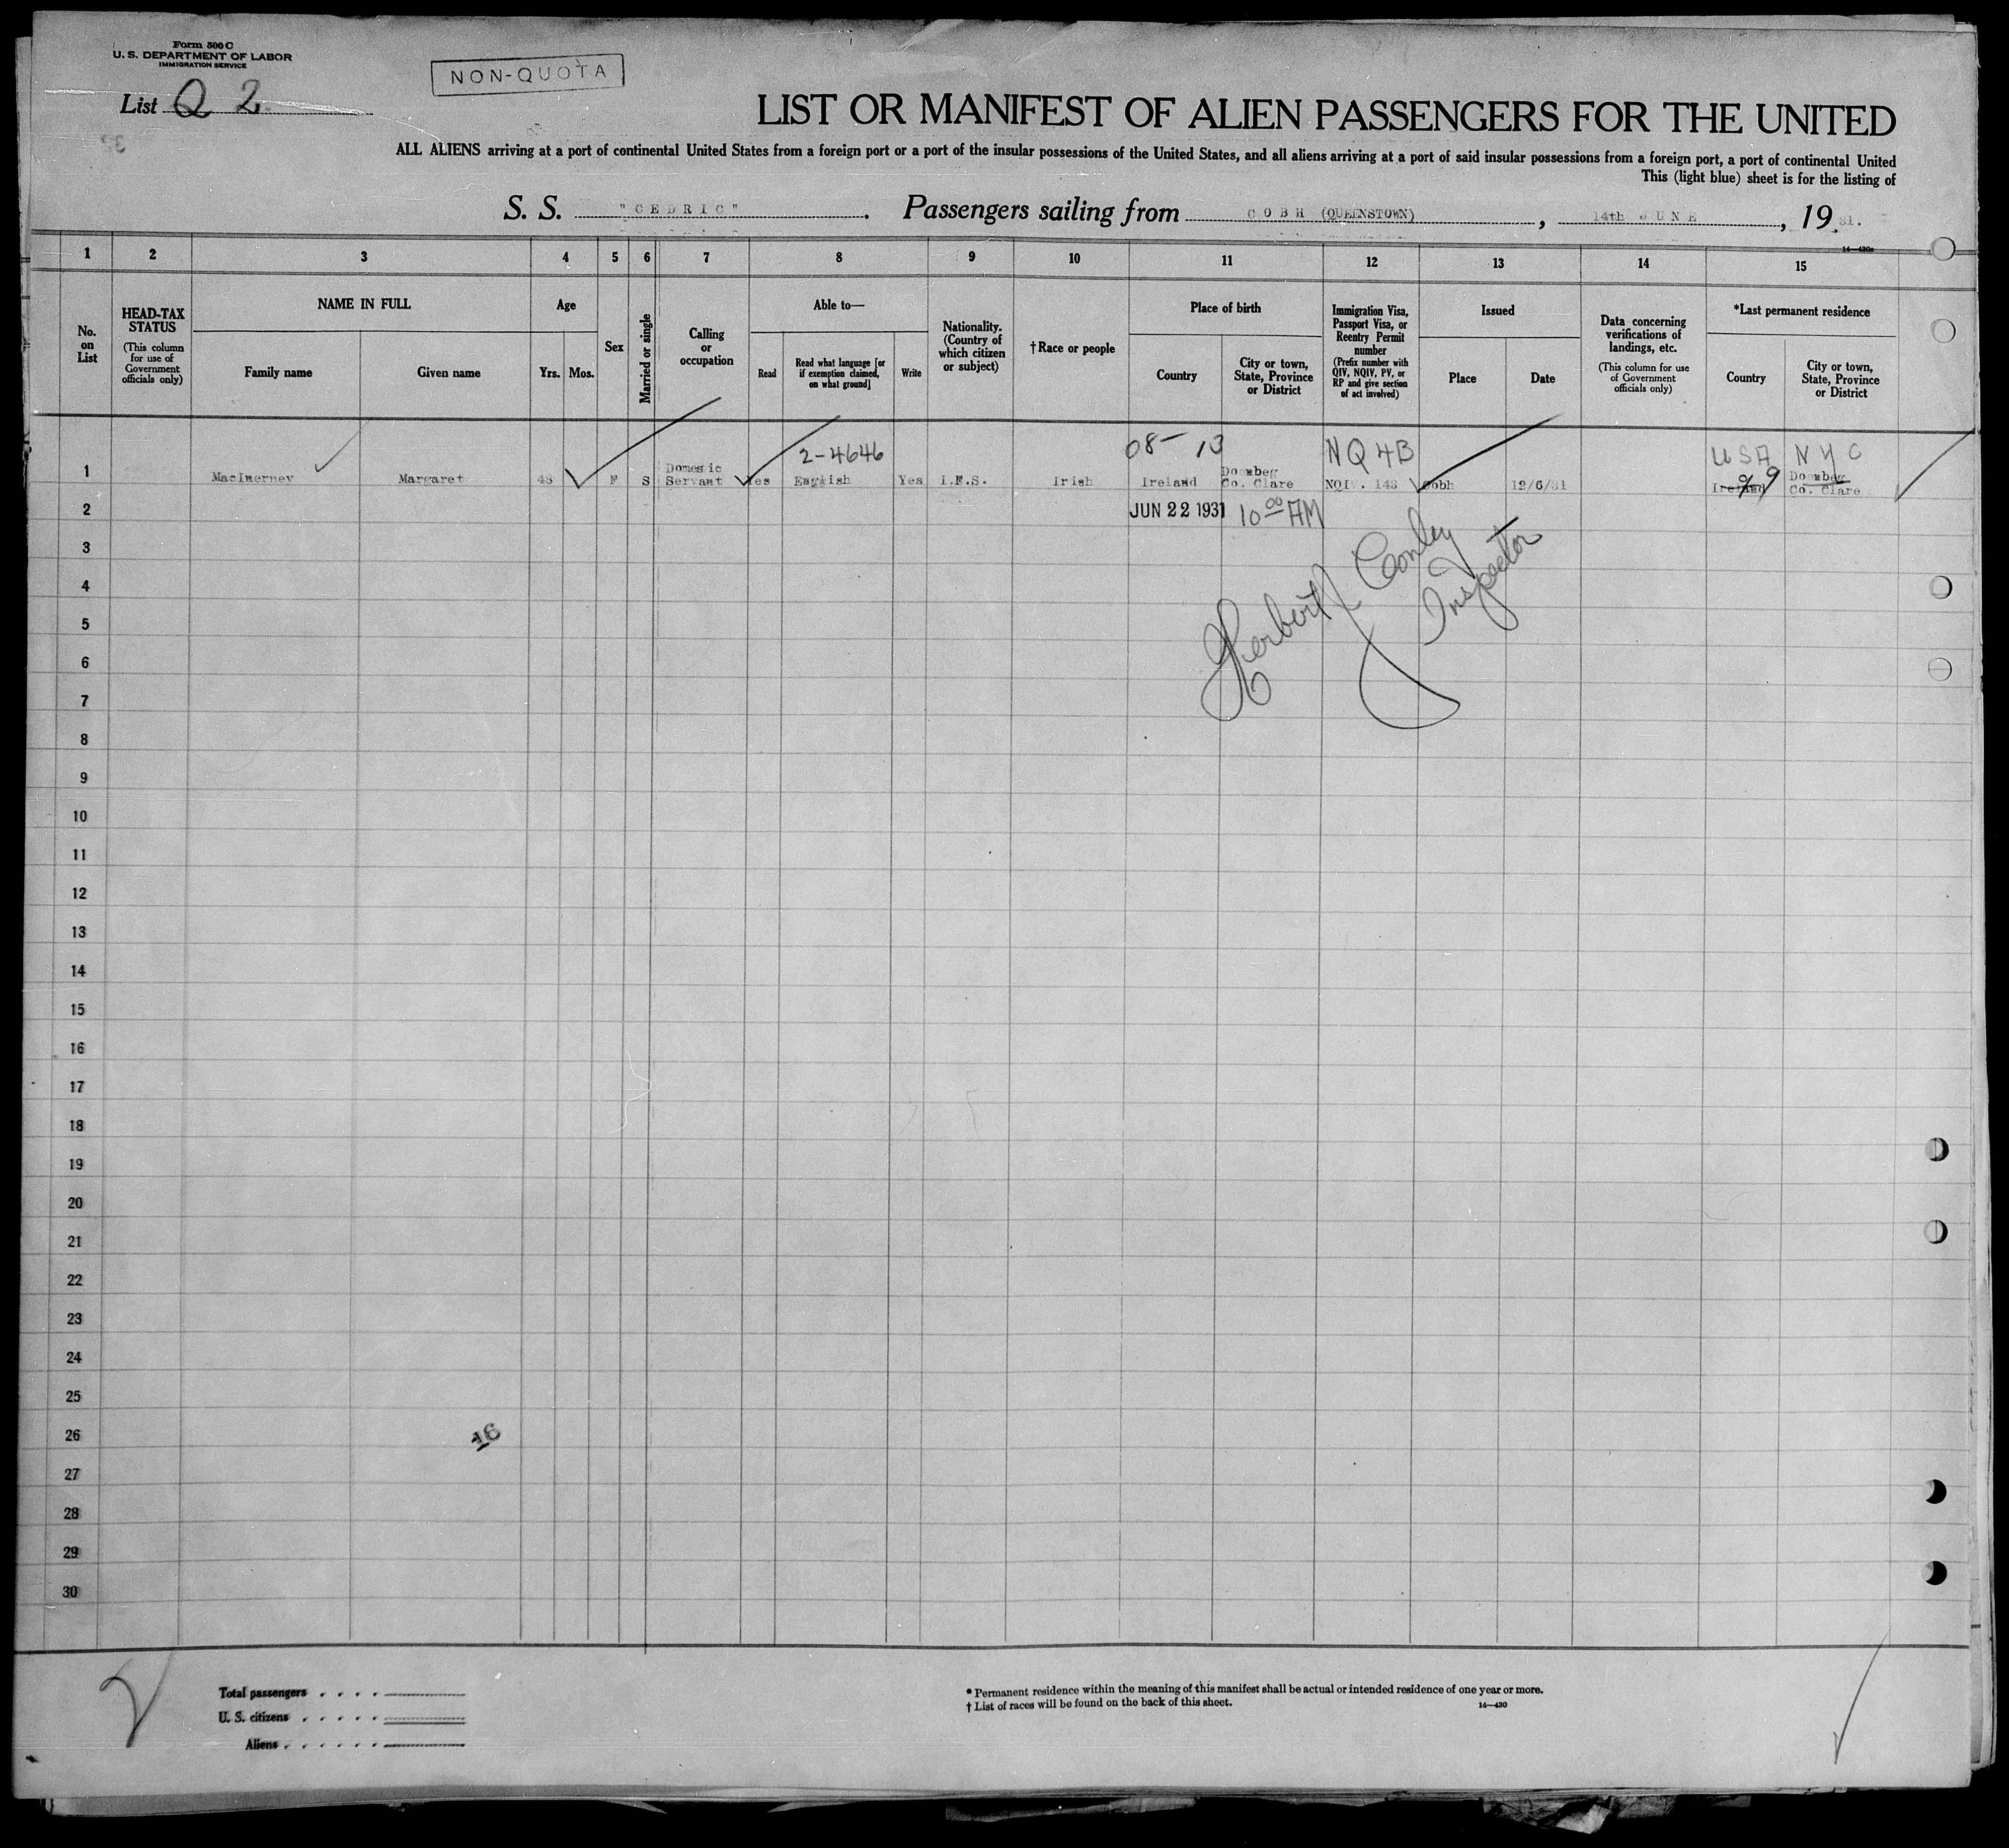 Form 500 C
U. S. DEPARTMENT OF LABOR
IMMIGRATION SERVICE
NON-QUOTA
List Q 2
LIST OR MANIFEST OF ALIEN PASSENGERS FOR THE UNITED
ALL ALIENS arriving at a port of continental United States from a foreign port or a port of the insular possessions of the United States, and all aliens arriving at a port of said insular possessions from a foreign port, a port of continental United
This (light blue) sheet is for the listing of
S. S. "CEDRIC". Passengers sailing from COBH (QUEENSTOWN), 14th JUNE, 19 31.
14—430a
1 2 3 4 5 6 7 8 9 10 11 12 13 14 15
No. on List
HEAD-TAX STATUS
(This column for use of Government officials only)
NAME IN FULL
Family name
Given name
Age
Yrs. Mos.
Sex
Married or single
Calling or occupation
Able to—
Read
Read what language [or if exemption claimed, on what ground]
Write
Nationality. (Country of which citizen or subject)
†Race or people
Place of birth
Country
City or town, State, Province or District
Immigration Visa, Passport Visa, or Reentry Permit number
(Prefix number with QIV, NQIV, PV, or RP and give section of act involved)
Issued
Place
Date
Data concerning verifications of landings, etc.
(This column for use of Government officials only)
*Last permanent residence
Country
City or town, State, Province or District
2-4646 08- 13 NQ 4B USA NYC
1 MacInerney Margaret 48 F S Domestic Servant Yes English Yes I.F.S. Irish Ireland Doonbeg Co. Clare NQIV. 143 Cobh 12/6/31 Ireland 9 Doonbeg Co. Clare
2 JUN 22 1931 10 00 AM
Herbert J Conley
Inspector
3
4
5
6
7
8
9
10
11
12
13
14
15
16
17
18
19
20
21
22
23
24
25
26
16
27
28
29
30
Total passengers
U. S. citizens
Aliens
* Permanent residence within the meaning of this manifest shall be actual or intended residence of one year or more.
† List of races will be found on the back of this sheet.
14—430